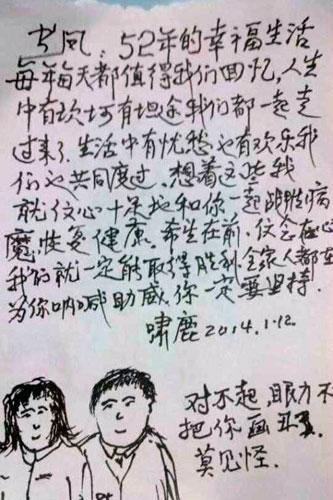 书凤：52年的幸福生活
每年每天都值得我们回忆，人生
中有坎坷有坦途我们都一起走
过来了.生活中有忧愁也有欢乐我
们也共同度过，想着这些我
就信心十足地和你一起战胜病
魔，恢复健康。希望在前，信念在心
我们就一定能取得胜利，全家人都在
为你呐喊助威，你一定要坚持.
啸鹿2014.1.12.
对不起，眼力不
把你画丑了.
莫见怪.